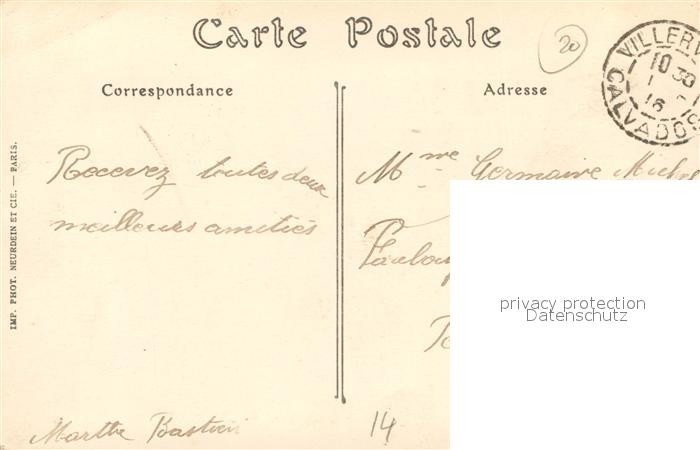 Carte Postale
20
VILLERV
10 30
16
CALVADOS
Correspondance
Adresse
Recevez toutes deux
meilleurs amitiés
Mme Germaine Michel
privacy protection
Datenschutz
Marthe Bastien
14
IMP. PHOT. NEURDEIN ET CIE. — PARIS.